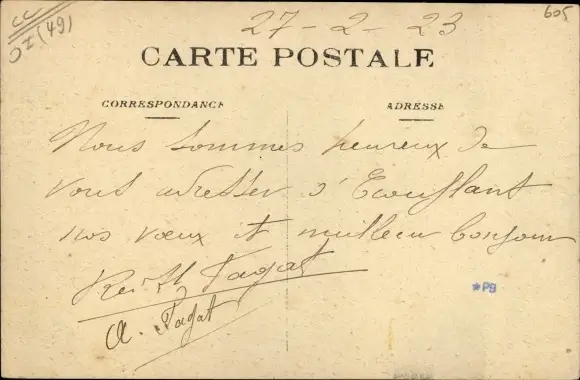 27-2-23
605
(49)
CARTE POSTALE
CORRESPONDANCE
ADRESSE
Nous sommes heureux de
vous adresser d'Ecouflant
nos vœux et meilleur bonjour
Pagat
A. Pagat
*P9